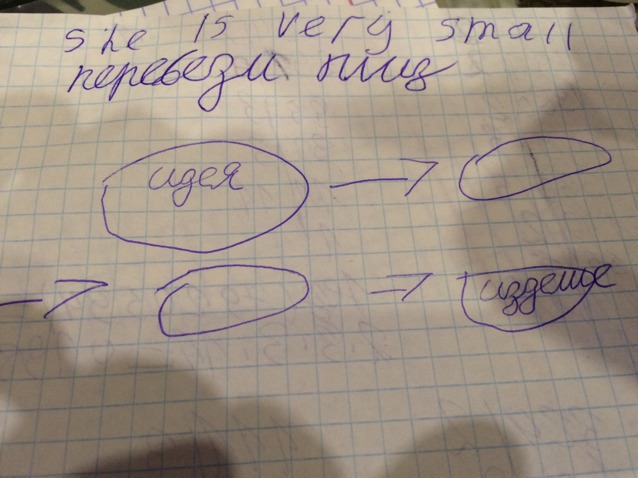 she is very small
переведи плиз
идея
изделие